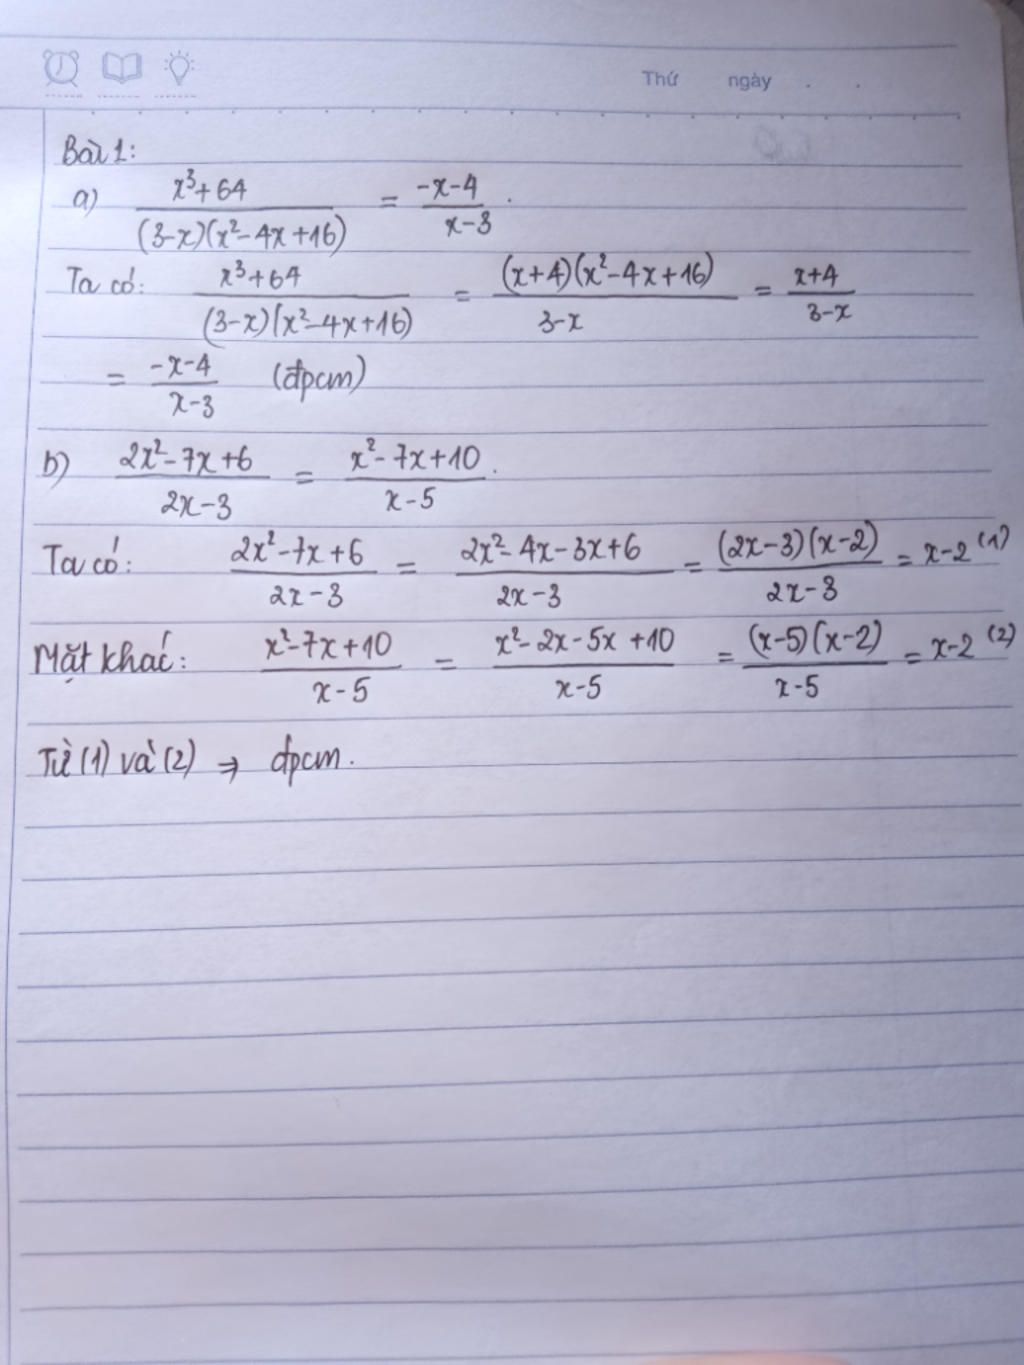 Thứ ngày . .
Bài 1:
a) \frac{x^3+64}{(3-x)(x^2-4x+16)} = \frac{-x-4}{x-3}.
Ta có: \frac{x^3+64}{(3-x)(x^2-4x+16)} = \frac{(x+4)(x^2-4x+16)}{3-x} = \frac{x+4}{3-x}
= \frac{-x-4}{x-3} (đpcm)
b) \frac{2x^2-7x+6}{2x-3} = \frac{x^2-7x+10}{x-5}.
Ta có: \frac{2x^2-7x+6}{2x-3} = \frac{2x^2-4x-3x+6}{2x-3} = \frac{(2x-3)(x-2)}{2x-3} = x-2 (1)
Mặt khác: \frac{x^2-7x+10}{x-5} = \frac{x^2-2x-5x+10}{x-5} = \frac{(x-5)(x-2)}{x-5} = x-2 (2)
Từ (1) và (2) ⇒ đpcm.